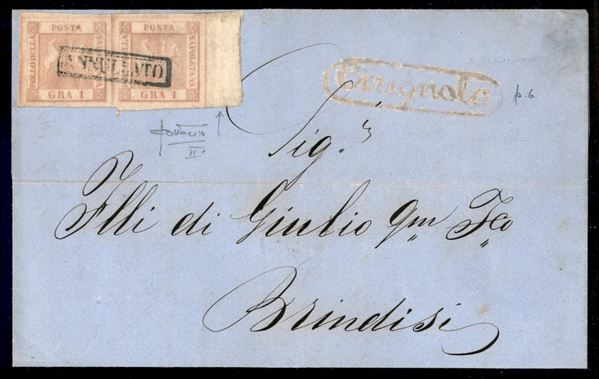 POSTA POSTA
BOLLO DELLA NAPOLETANA BOLLO DELLA NAPOLETANA
ANNULLATO
GRA 1 GRA 1
Cerignola
p. 6
II.
Sig.ri
Flli di Giulio qm Fco
Brindisi